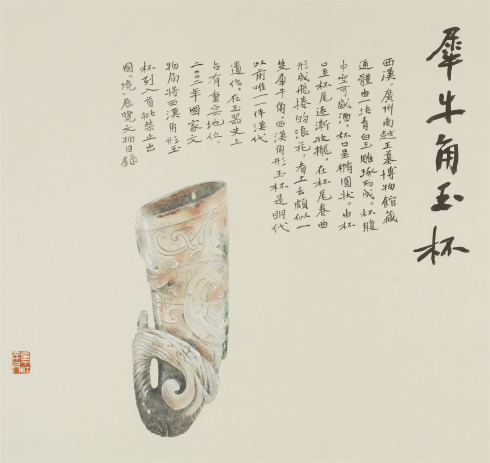 犀牛角玉杯
西漢。廣州南越王墓博物館藏
通體由一塊青白玉雕琢而成。杯腹
中空可盛酒。杯口呈橢圓狀。由杯
口至杯尾逐漸收攏。在杯尾卷曲
形成飛捲的浪花。看上去頗似一
隻犀牛角。西漢角形玉杯是明代
以前唯一一件漢代
遺作。在玉器史上
占有重要地位。
二〇〇二年國家文
物局將西漢角形玉
杯列入首批禁止出
國（境）展覽文物目錄